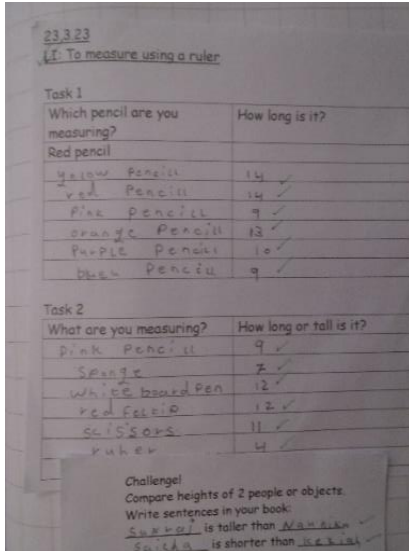 23.3.23
LI: To measure using a ruler
Task 1
Which pencil are you measuring? How long is it?
Red pencil
yelow Pencill 14
red Pencill 14
Pink pencill 9
orange Pencill 13
PurPLE Pencill 10
Pencill 9
Task 2
What are you measuring? How long or tall is it?
Pink Pencill 9
Sponge 7
white board Pen 12
red 12
scissors 11
4
Challenge!
Compare heights of 2 people or objects.
Write sentences in your book:
is taller than
is shorter than